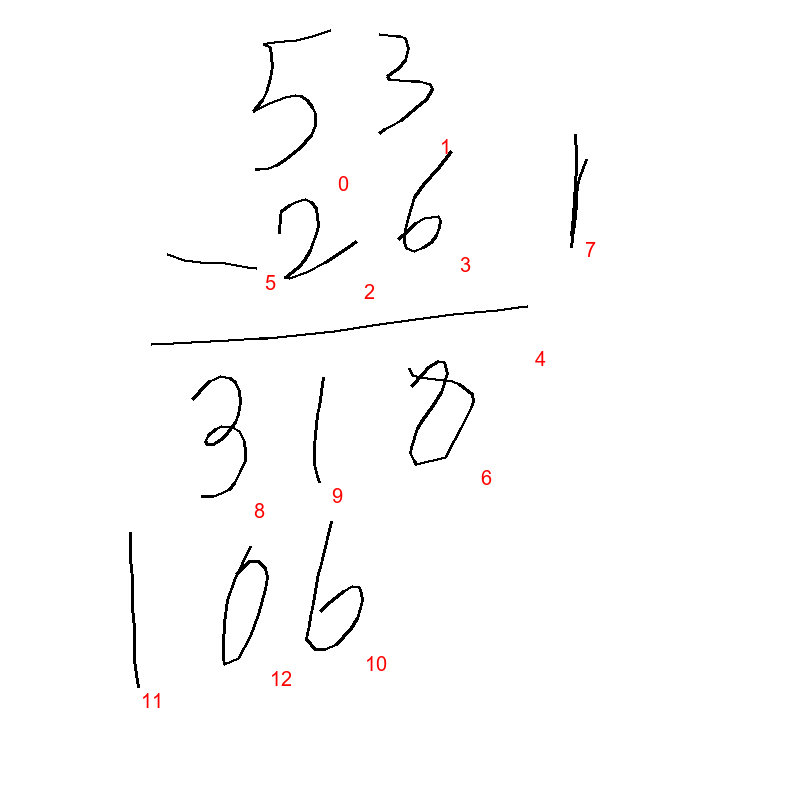 53
0 1
- 26 1
5 2 3 7
4
318
8 9 6
106
11 12 10